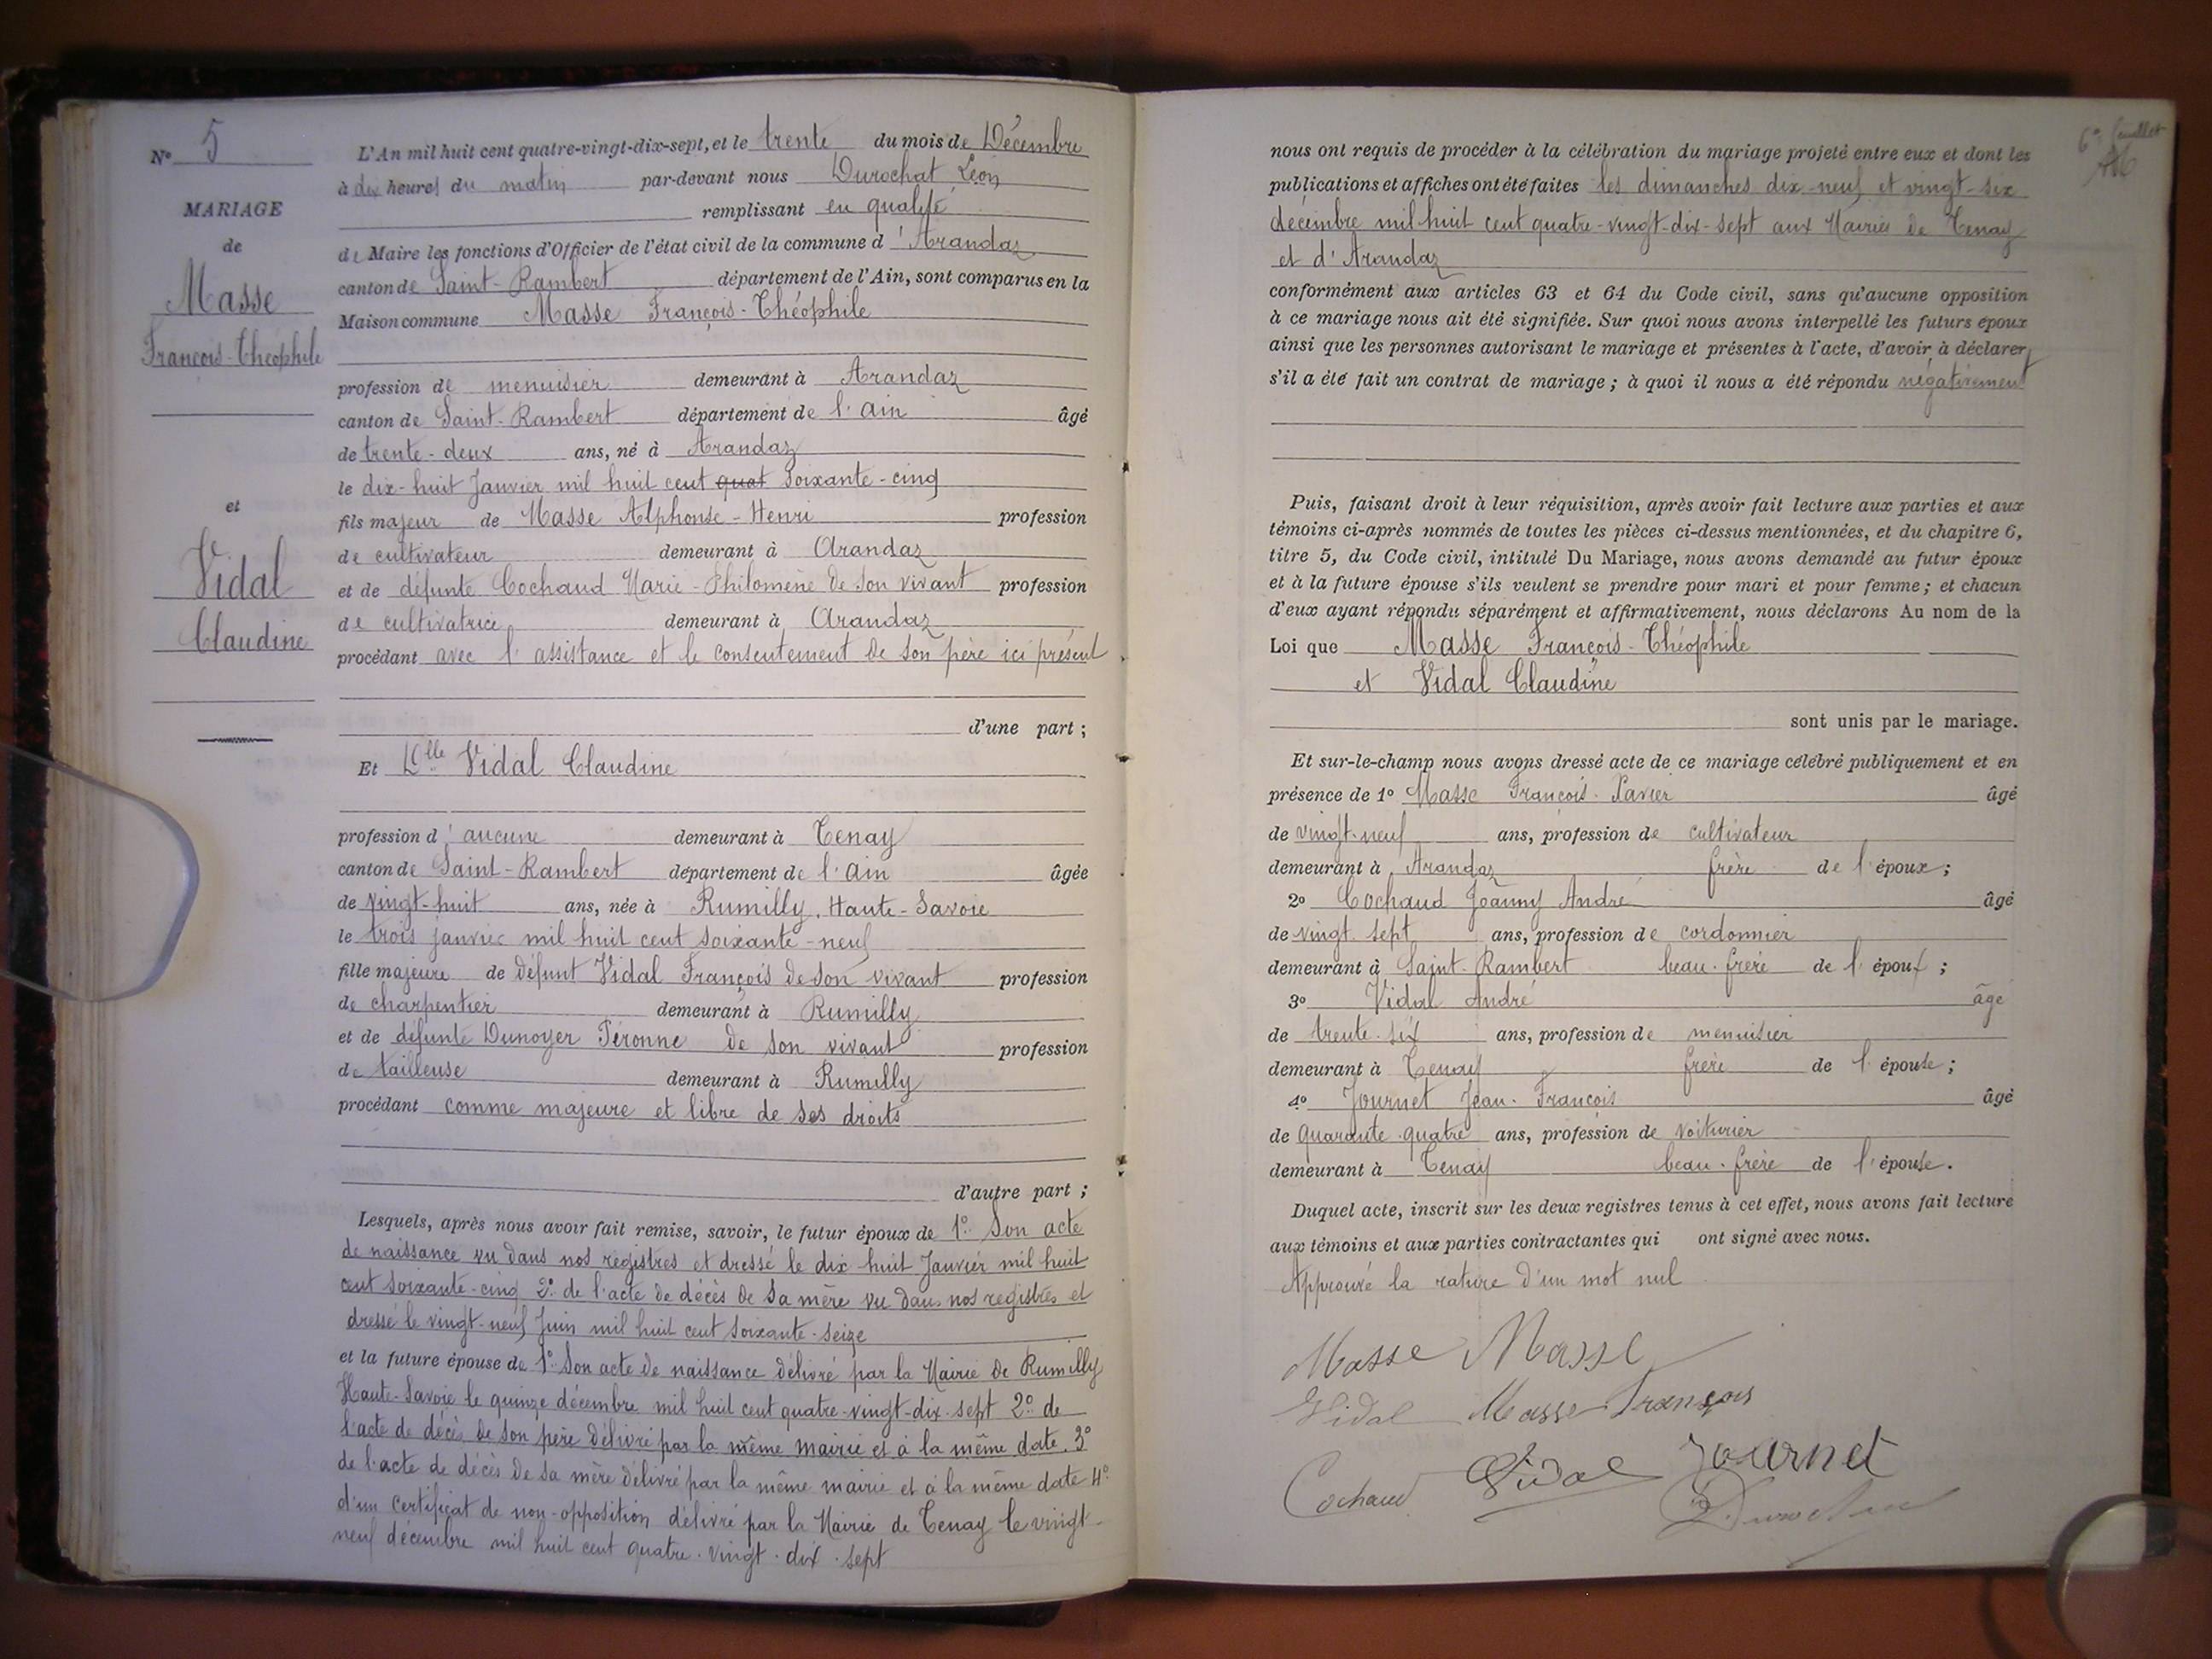 N° 5
MARIAGE
de
Masse
François-Théophile
et
Vidal
Claudine
L'An mil huit cent quatre-vingt-dix-sept, et le trente du mois de Décembre
à dix heures du matin par-devant nous Durochat Léon
remplissant en qualité
de Maire les fonctions d'Officier de l'état civil de la commune d'Arandaz
canton de Saint-Rambert département de l'Ain, sont comparus en la
Maison commune Masse François-Théophile
profession de menuisier demeurant à Arandaz
canton de Saint-Rambert département de l'Ain âgé
de trente-deux ans, né à Arandaz
le dix-huit Janvier mil huit cent quat soixante-cinq
fils majeur de Masse Alphonse-Henri profession
de cultivateur demeurant à Arandaz
et de défunte Cochaud Marie-Philomène de son vivant profession
de cultivatrice demeurant à Arandaz
procédant avec l'assistance et le consentement de son père ici présent
d'une part ;
Et Dlle Vidal Claudine
profession d'aucune demeurant à Tenay
canton de Saint-Rambert département de l'Ain âgée
de vingt-huit ans, née à Rumilly, Haute-Savoie
le trois janvier mil huit cent soixante-neuf
fille majeure de défunt Vidal François de son vivant profession
de charpentier demeurant à Rumilly
et de défunte Dunoyer Péronne de son vivant profession
de tailleuse demeurant à Rumilly
procédant comme majeure et libre de ses droits
d'autre part ;
Lesquels, après nous avoir fait remise, savoir, le futur époux de 1° Son acte
de naissance vu dans nos registres et dressé le dix huit Janvier mil huit
cent soixante-cinq 2° de l'acte de décès de sa mère vu dans nos registres et
dressé le vingt-neuf Juin mil huit cent soixante-seize
et la future épouse de 1° Son acte de naissance délivré par la Mairie de Rumilly
Haute-Savoie le quinze décembre mil huit cent quatre-vingt-dix-sept 2° de
l'acte de décès de son père délivré par la même mairie et à la même date. 3°
de l'acte de décès de sa mère délivré par la même mairie et à la même date 4°
d'un certificat de non-opposition délivré par la Mairie de Tenay le vingt-
neuf décembre mil huit cent quatre-vingt-dix-sept
6e feuillet
nous ont requis de procéder à la célébration du mariage projeté entre eux et dont les
publications et affiches ont été faites les dimanches dix-neuf et vingt-six
décembre mil huit cent quatre-vingt-dix-sept aux Mairies de Tenay
et d'Arandaz
conformément aux articles 63 et 64 du Code civil, sans qu'aucune opposition
à ce mariage nous ait été signifiée. Sur quoi nous avons interpellé les futurs époux
ainsi que les personnes autorisant le mariage et présentes à l'acte, d'avoir à déclarer
s'il a été fait un contrat de mariage ; à quoi il nous a été répondu négativement
Puis, faisant droit à leur réquisition, après avoir fait lecture aux parties et aux
témoins ci-après nommés de toutes les pièces ci-dessus mentionnées, et du chapitre 6,
titre 5, du Code civil, intitulé Du Mariage, nous avons demandé au futur époux
et à la future épouse s'ils veulent se prendre pour mari et pour femme ; et chacun
d'eux ayant répondu séparément et affirmativement, nous déclarons Au nom de la
Loi que Masse François-Théophile
et Vidal Claudine
sont unis par le mariage.
Et sur-le-champ nous avons dressé acte de ce mariage célébré publiquement et en
présence de 1° Masse François-Xavier âgé
de vingt-neuf ans, profession de cultivateur
demeurant à Arandaz frère de l'époux ;
2° Cochaud Joanny André âgé
de vingt-sept ans, profession de cordonnier
demeurant à Saint-Rambert beau-frère de l'époux ;
3° Vidal André âgé
de trente-six ans, profession de menuisier
demeurant à Tenay frère de l'épouse ;
4° Journet Jean-François âgé
de quarante-quatre ans, profession de voiturier
demeurant à Tenay beau-frère de l'épouse.
Duquel acte, inscrit sur les deux registres tenus à cet effet, nous avons fait lecture
aux témoins et aux parties contractantes qui ont signé avec nous.
Approuvé la rature d'un mot nul
Masse Masse
Vidal Masse François
Cochaud Vidal Journet
Durochat